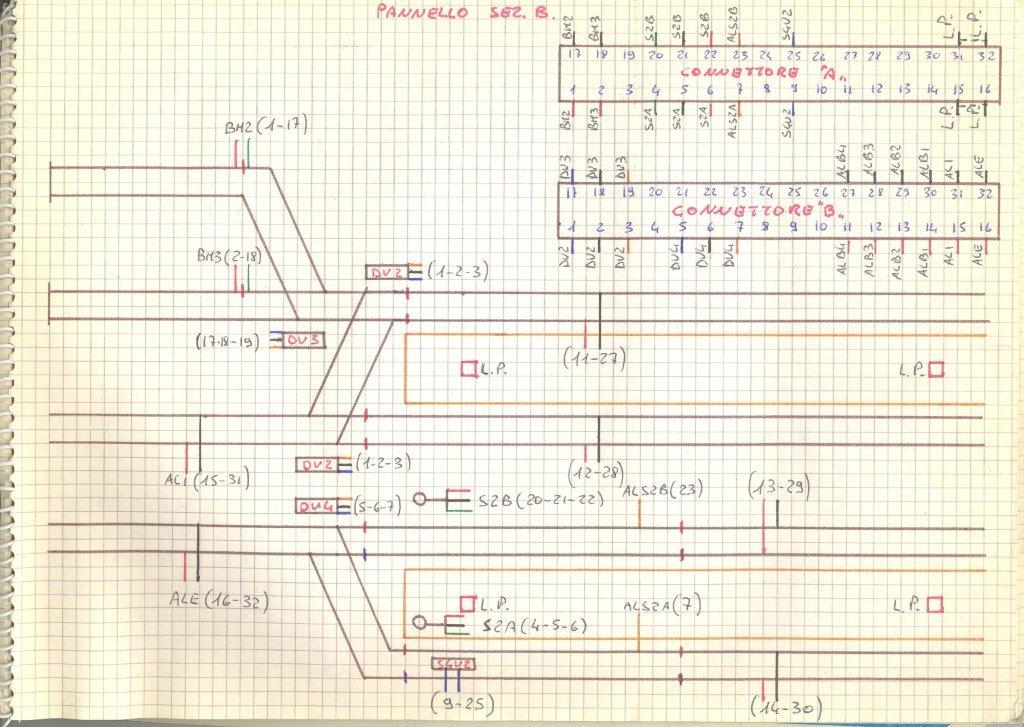 PANNELLO SEZ. B.
BM2 BM3 S2B S2B S2B ALS2B SGV2 L.P. L.P.
17 18 19 20 21 22 23 24 25 26 27 28 29 30 31 32
CONNETTORE "A"
1 2 3 4 5 6 7 8 9 10 11 12 13 14 15 16
BM2 BM3 S2A S2A S2A ALS2A SGV2 L.P. L.P.
BM2 (1-17)
DV3 DV3 DV3 ALB4 ALB3 ALB2 ALB1 AL1 ALE
17 18 19 20 21 22 23 24 25 26 27 28 29 30 31 32
CONNETTORE "B"
1 2 3 4 5 6 7 8 9 10 11 12 13 14 15 16
DV2 DV2 DV2 DV4 DV4 DV4 ALB4 ALB3 ALB2 ALB1 AL1 ALE
BM3 (2-18)
DV2 (1-2-3)
(17-18-19) DV3
(11-27)
L.P. L.P.
DV2 (1-2-3)
AL1 (15-31)
(12-28)
S2B (20-21-22)
ALS2B (23)
(13-29)
DV4 (5-6-7)
ALE (16-32)
L.P. ALS2A (7) L.P.
S2A (4-5-6)
SGV2
(9-25)
(14-30)